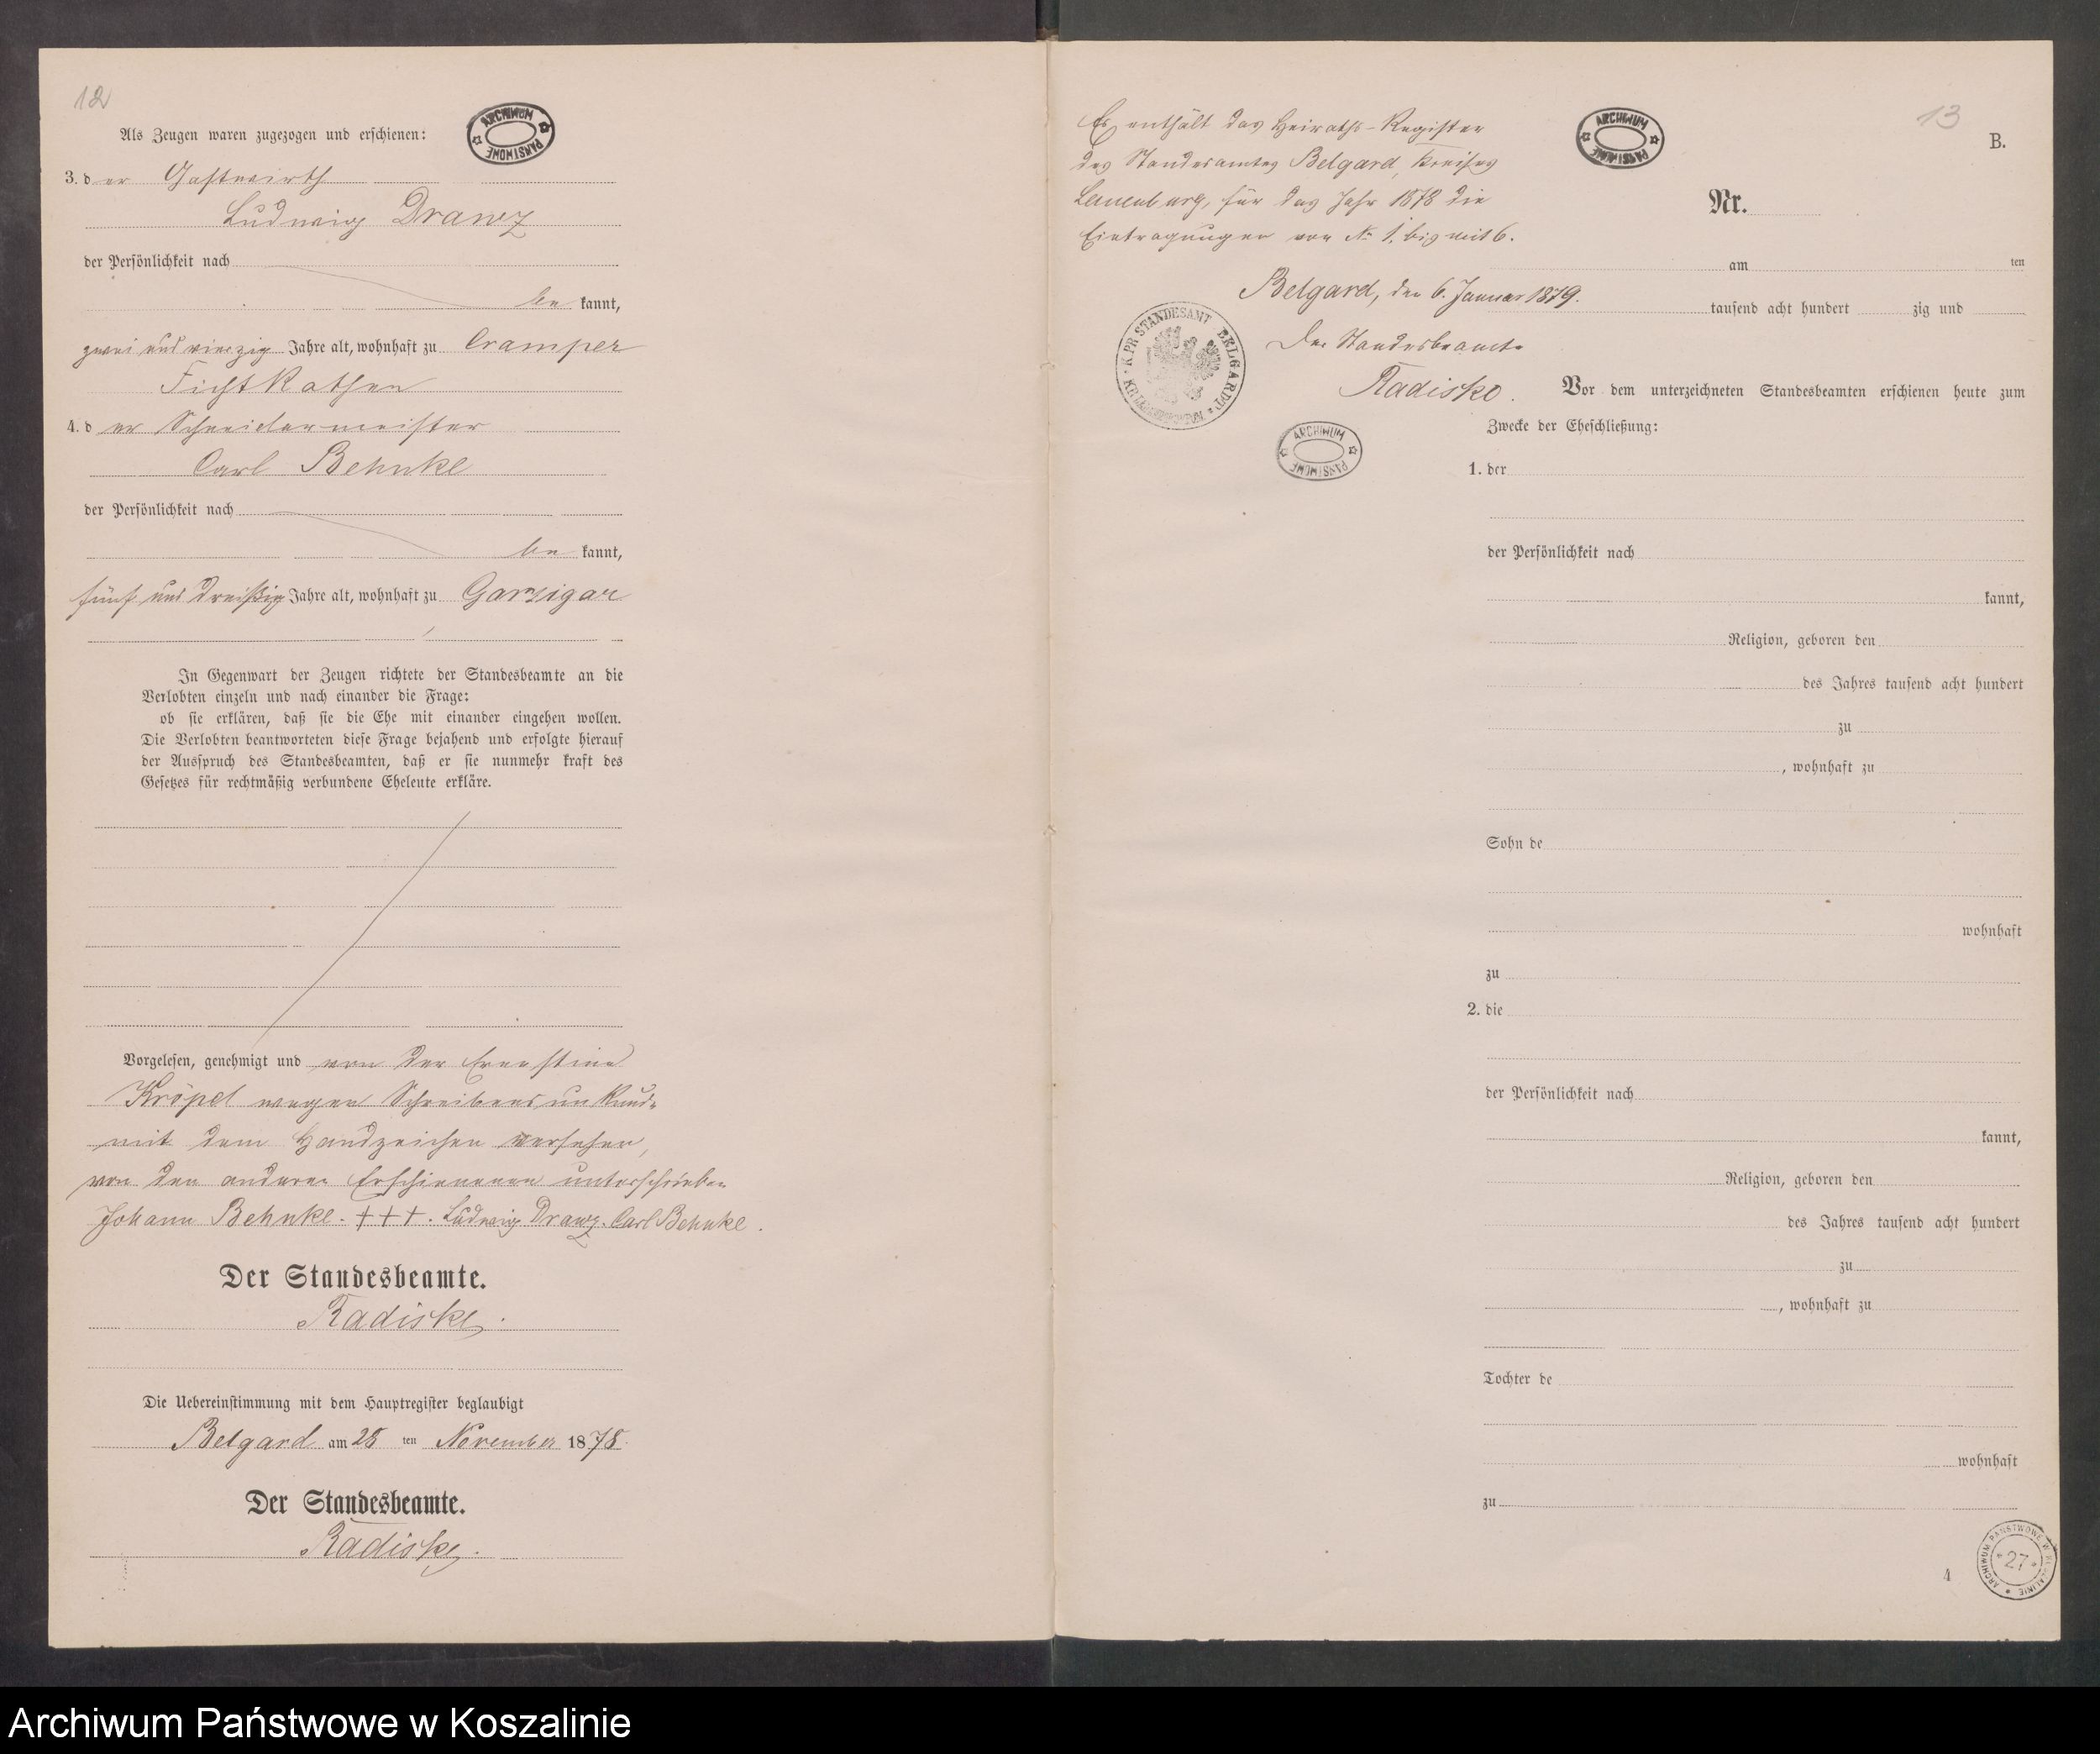 12
Als Zeugen waren zugezogen und erschienen:
ARCHIWUM PAŃSTWOWE
3. der Gastwirth
Ludwig Drawz
der Persönlichkeit nach
be kannt,
zwei und vierzig Jahre alt, wohnhaft zu Cramper
Fichtkathen
4. der Schneidermeister
Carl Behnke
der Persönlichkeit nach
be kannt,
fünf und dreißig Jahre alt, wohnhaft zu Garzigar
In Gegenwart der Zeugen richtete der Standesbeamte an die
Verlobten einzeln und nach einander die Frage:
ob sie erklären, daß sie die Ehe mit einander eingehen wollen.
Die Verlobten beantworteten diese Frage bejahend und erfolgte hierauf
der Ausspruch des Standesbeamten, daß er sie nunmehr kraft des
Gesetzes für rechtmäßig verbundene Eheleute erkläre.
Vorgelesen, genehmigt und von der Ernestine
Kröpel wegen Schreibensunkunde
mit dem Handzeichen versehen,
von den anderen Erschienenen unterschrieben
Johann Behnke. +++. Ludwig Drawz. Carl Behnke.
Der Standesbeamte.
Radiske.
Die Uebereinstimmung mit dem Hauptregister beglaubigt
Belgard am 28 ten November 1878.
Der Standesbeamte.
Radiske.
13
B.
Es enthält das Heiraths-Register
des Standesamtes Belgard, Kreises
Lauenburg, für das Jahr 1878 die
Eintragungen von No 1, bis mit 6.
Belgard, den 6. Januar 1879.
Der Standesbeamte
Radiske.
K. PR. STANDESAMT BELGARD
ARCHIWUM PAŃSTWOWE
ARCHIWUM PAŃSTWOWE
Nr.
am ten
tausend acht hundert zig und
Vor dem unterzeichneten Standesbeamten erschienen heute zum
Zwecke der Eheschließung:
1. der
der Persönlichkeit nach
kannt,
Religion, geboren den
des Jahres tausend acht hundert
zu
, wohnhaft zu
Sohn de
wohnhaft
zu
2. die
der Persönlichkeit nach
kannt,
Religion, geboren den
des Jahres tausend acht hundert
zu
, wohnhaft zu
Tochter de
wohnhaft
zu
4
ARCHIWUM PAŃSTWOWE W KOSZALINIE
27
Archiwum Państwowe w Koszalinie